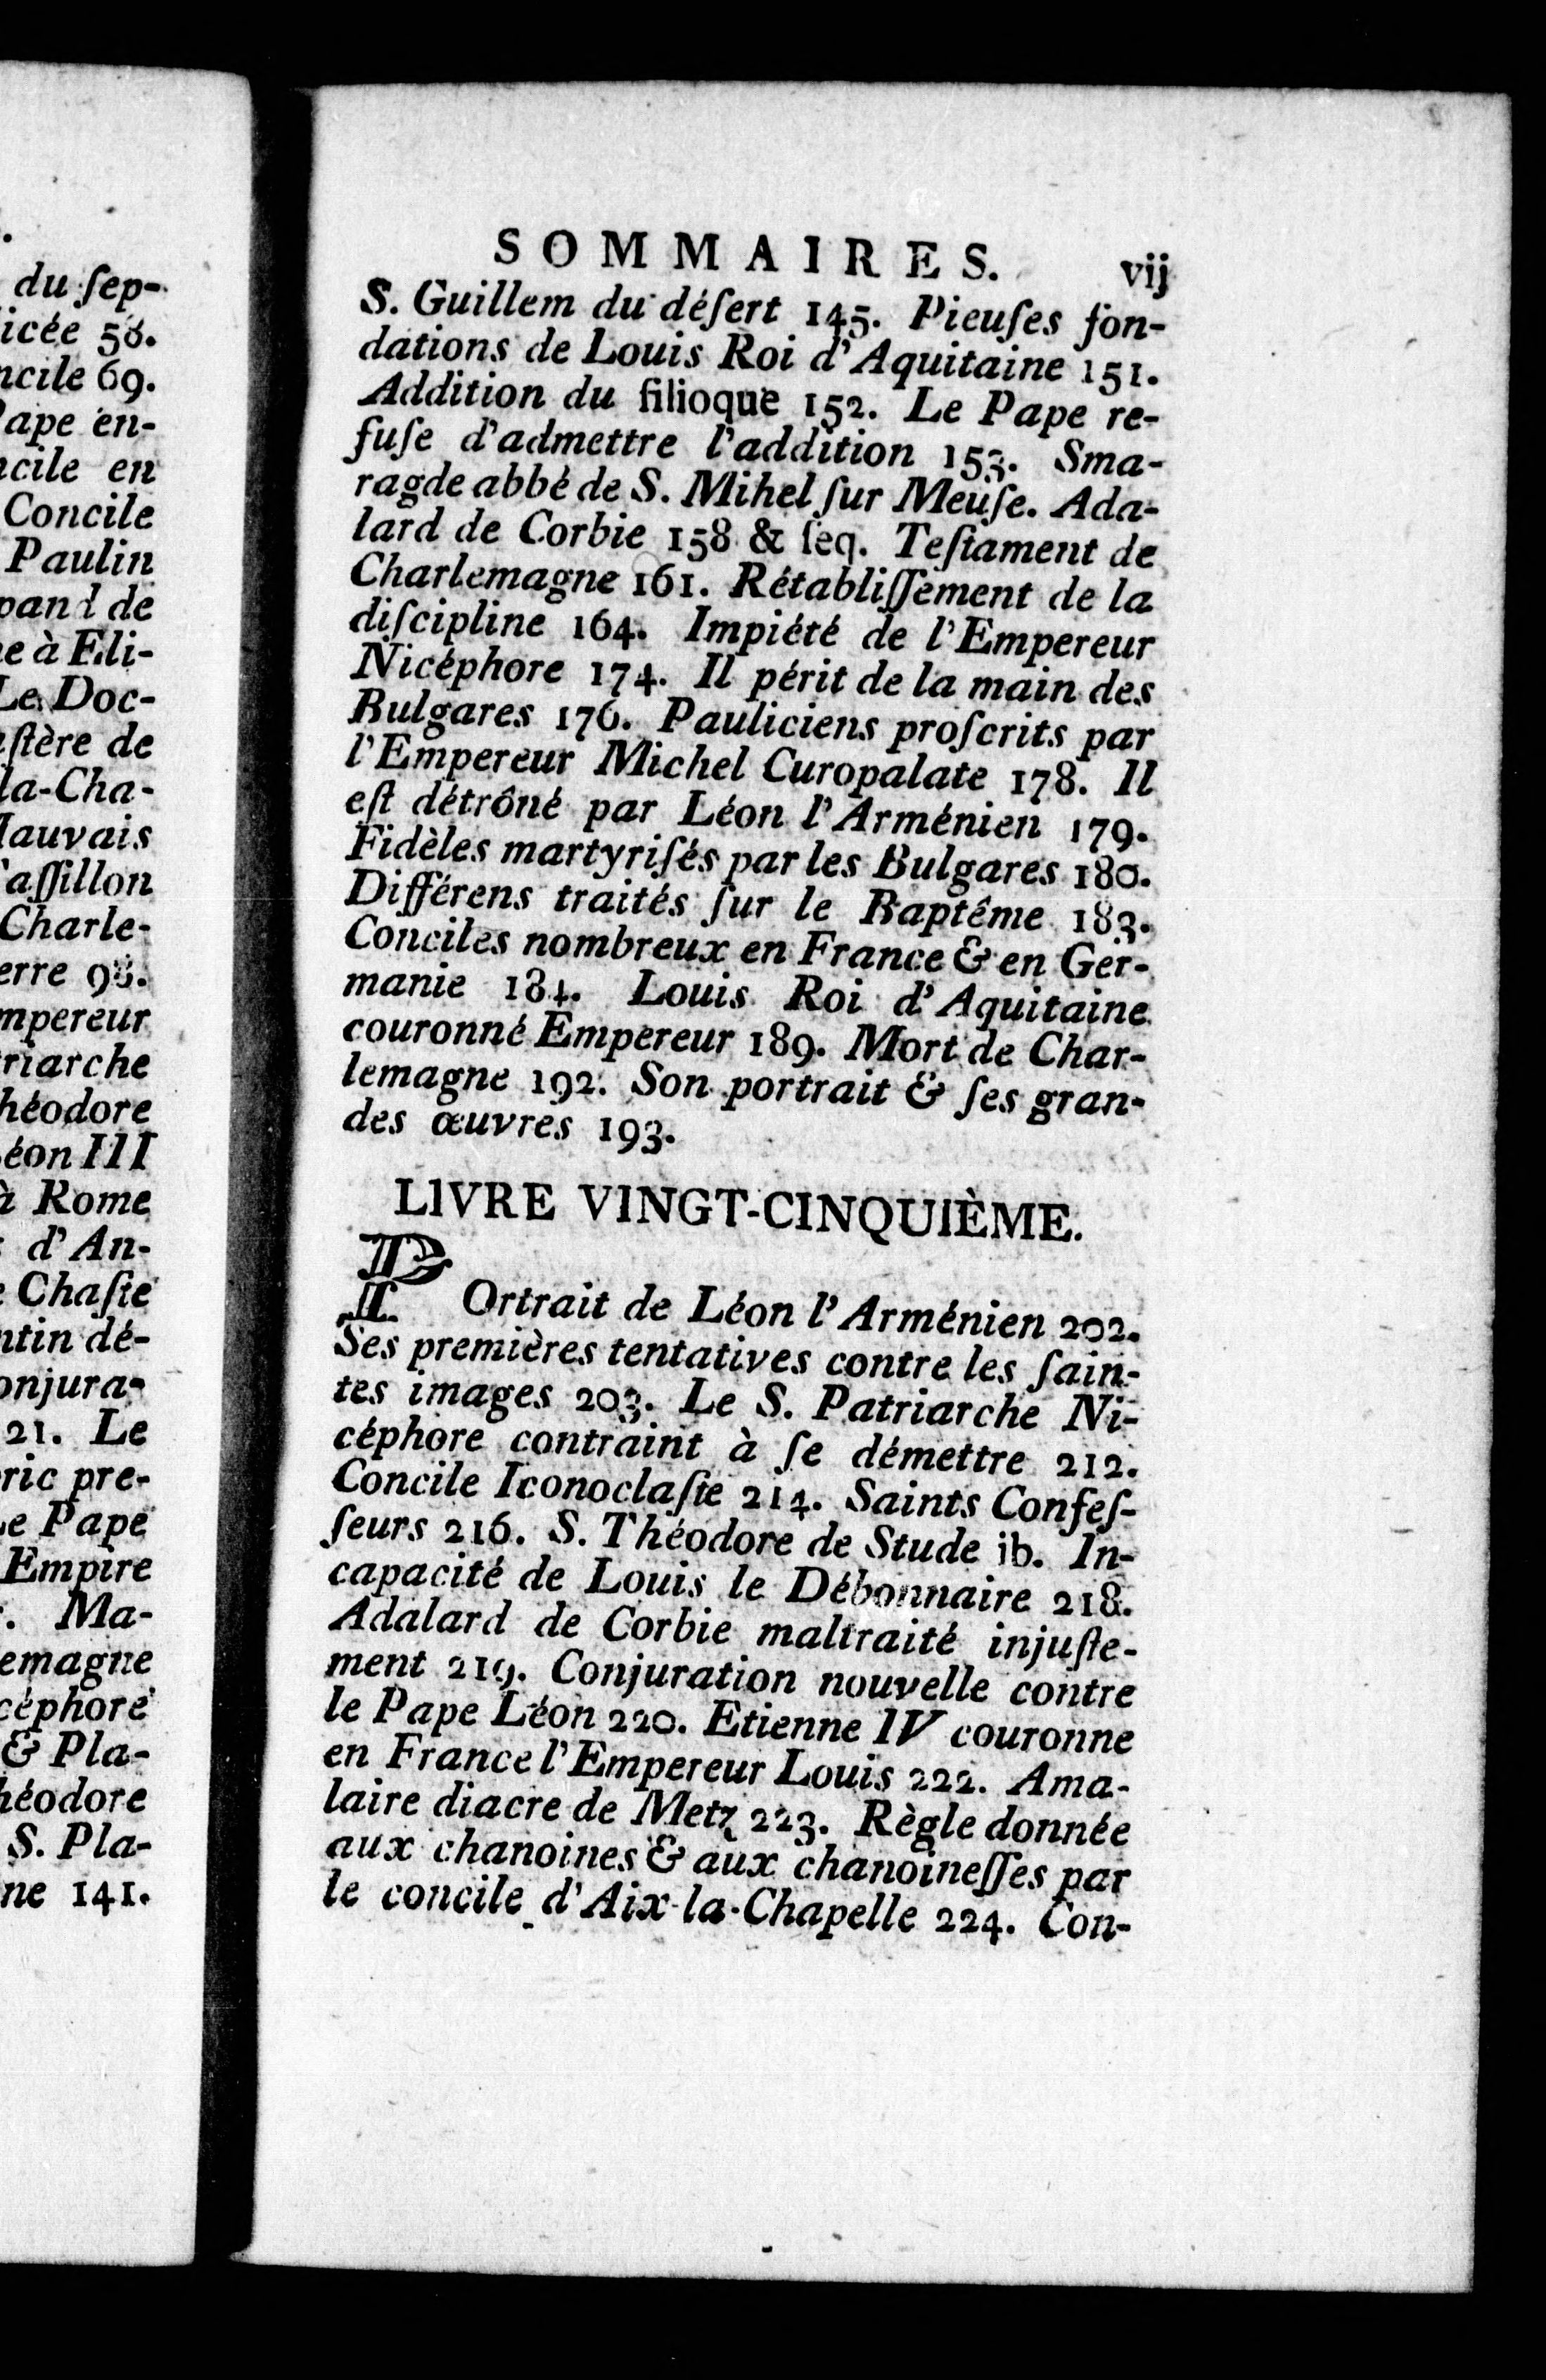 du ſep-
icée 58.
ncile 69.
Pape en-
ncile en
Concile
Paulin
pand de
ne à Eli-
Le Doc-
aſtère de
la-Cha-
Mauvais
Taſſillon
Charle-
erre 98.
mpereur
triarche
héodore
Léon III
à Rome
d'An-
Chaſte
ntin dé-
onjura-
21. Le
ric pre-
Le Pape
Empire
Ma-
emagne
céphore
& Pla-
héodore
S. Pla-
ne 141.
SOMMAIRES. vij
S. Guillem du déſert 145. Pieuſes fon-
dations de Louis Roi d'Aquitaine 151.
Addition du filioque 152. Le Pape re-
fuſe d'admettre l'addition 153. Sma-
ragde abbé de S. Mihel ſur Meuſe. Ada-
lard de Corbie 158 & ſeq. Teſtament de
Charlemagne 161. Rétabliſſement de la
diſcipline 164. Impiété de l'Empereur
Nicéphore 174. Il périt de la main des
Bulgares 176. Pauliciens proſcrits par
l'Empereur Michel Curopalate 178. Il
eſt détrôné par Léon l'Arménien 179.
Fidèles martyriſés par les Bulgares 180.
Différens traités ſur le Baptême 183.
Conciles nombreux en France & en Ger-
manie 184. Louis Roi d'Aquitaine
couronné Empereur 189. Mort de Char-
lemagne 192. Son portrait & ſes gran-
des œuvres 193.
LIVRE VINGT-CINQUIÈME.
POrtrait de Léon l'Arménien 202.
Ses premières tentatives contre les ſain-
tes images 203. Le S. Patriarche Ni-
céphore contraint à ſe démettre 212.
Concile Iconoclaſte 214. Saints Confeſ-
ſeurs 216. S. Théodore de Stude ib. In-
capacité de Louis le Débonnaire 218.
Adalard de Corbie maltraité injuſte-
ment 219. Conjuration nouvelle contre
le Pape Léon 220. Etienne IV couronne
en France l'Empereur Louis 222. Ama-
laire diacre de Metz 223. Règle donnée
aux chanoines & aux chanoineſſes par
le concile d'Aix-la-Chapelle 224. Con-